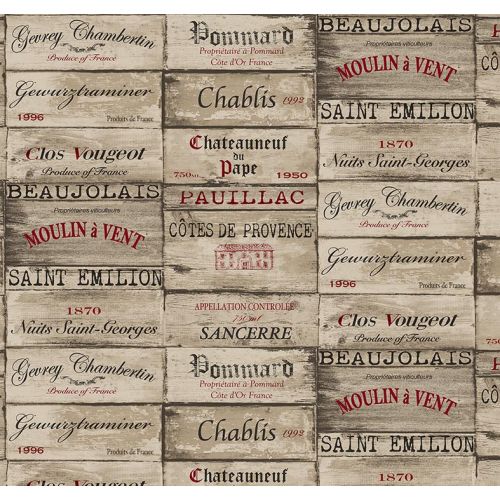 Gevrey Chambertin
Produce of France
Gewurztraminer
1996 Produits de France
Clos Vougeot
BEAUJOLAIS
Propriétaires viticulteurs
MOULIN à VENT
SAINT EMILION
1870
Nuits Saint-Georges
Gevrey Chambertin
Produce of France
Gewurztraminer
1996 Produits de France
Pommard
Propriétaire à Pommard
Côte d'Or France
Chablis 1992
Chateauneuf
du
Pape
750ml 1950
PAUILLAC
CÔTES DE PROVENCE
APPELLATION CONTROLÉE
750ml
SANCERRE
Pommard
Propriétaire à Pommard
Côte d'Or France
Chablis 1992
Chateauneuf
BEAUJOLAIS
Propriétaires viticulteurs
MOULIN à VENT
SAINT EMILION
1870
Nuits Saint-Georges
Gevrey Chambertin
Produce of France
Gewurztraminer
1996 Produits de France
Clos Vougeot
BEAUJOLAIS
Propriétaires viticulteurs
MOULIN à VENT
SAINT EMILION
1870